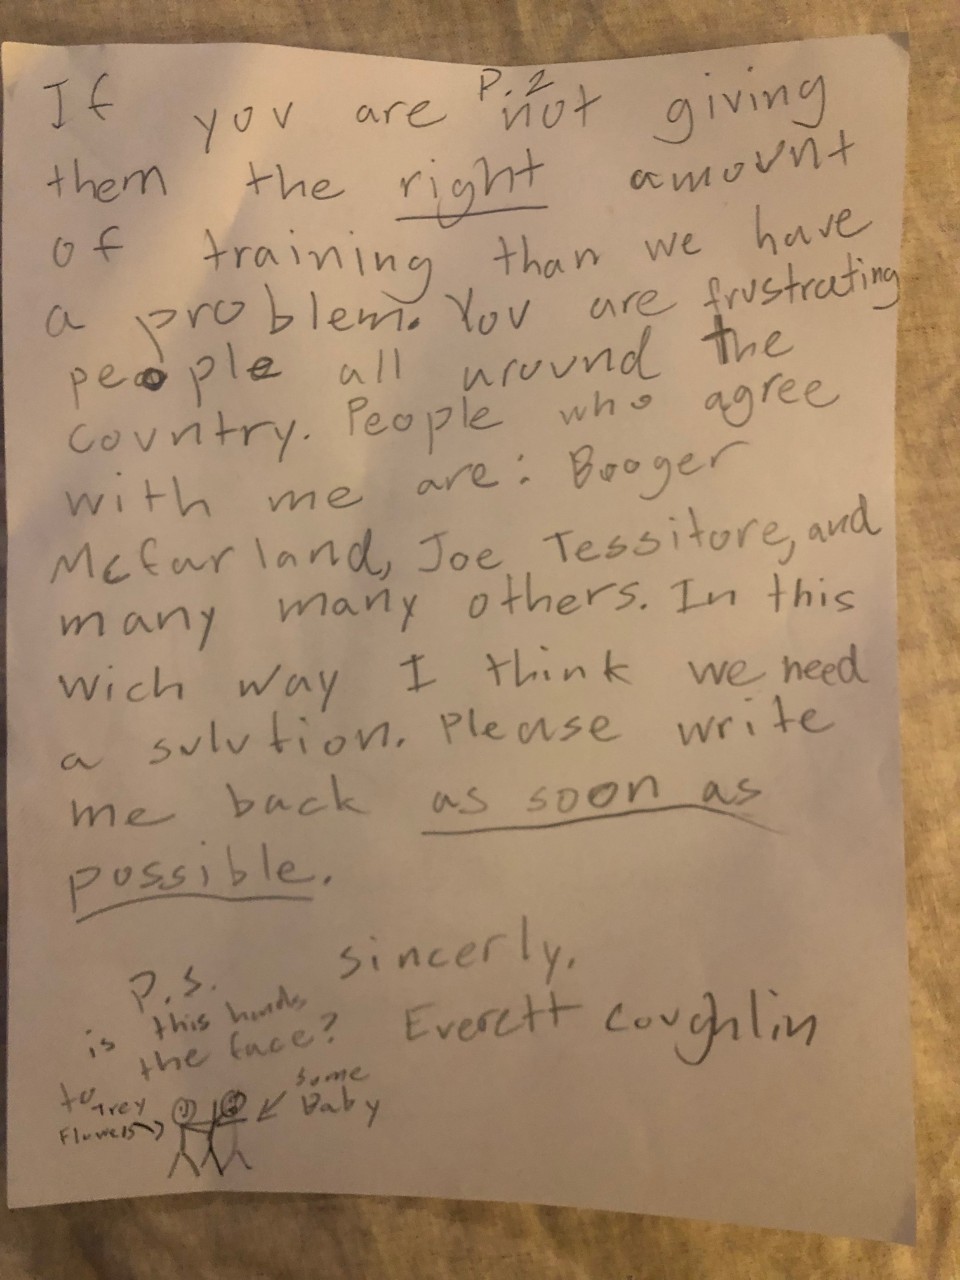 P.2
If you are not giving
them the right amount
of training than we have
a problem. You are frustrating
people all around the
country. People who agree
with me are: Booger
Mcfarland, Joe Tessitore, and
many many others. In this
wich way I think we need
a solution. Please write
me back as soon as
possible.
sincerly,
Everett Coughlin
P.S.
is this hands
to the face?
Trey
Flowers
some
Baby